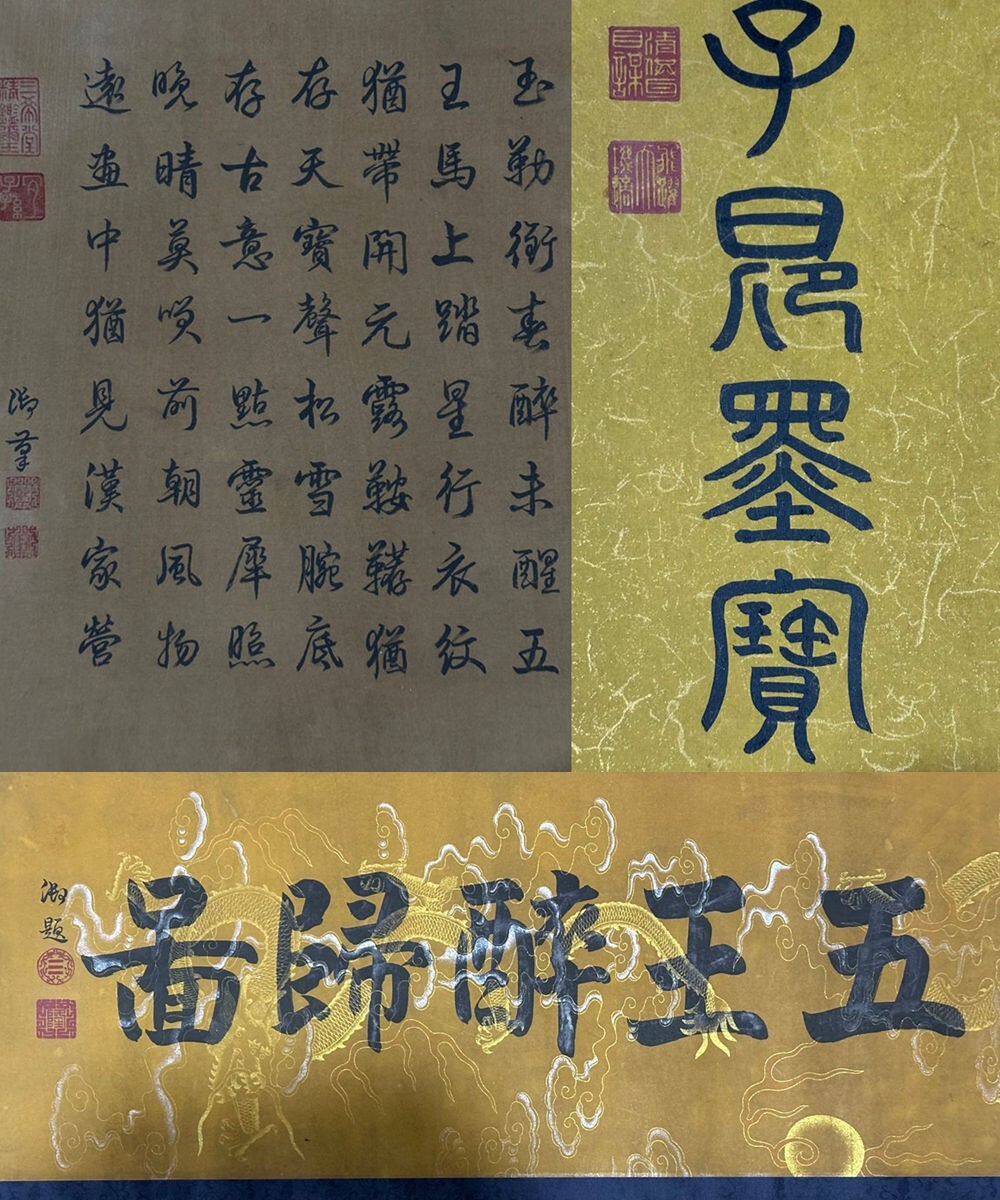 玉勒銜春醉未醒五
王馬上踏星行衣紋
猶帶開元露鞍韉猶
存天寶聲松雪腕底
存古意一點靈犀照
晚晴莫嘆前朝風物
遠畫中猶見漢家營
御筆
三希堂精鑑璽
宜子孫
子昂墨寶
五王醉歸啚
御題